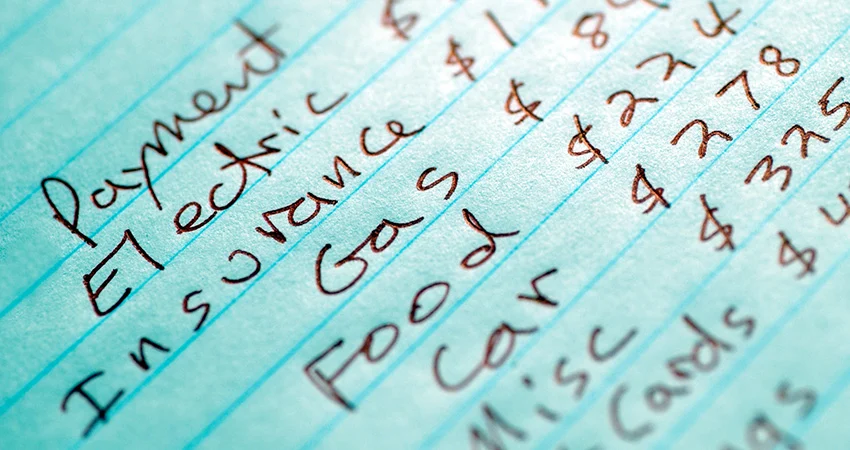 Payment $
Electric $1
Insurance $ 8
Gas $224
Food $278
Car $325
Misc $4
Cards
gs